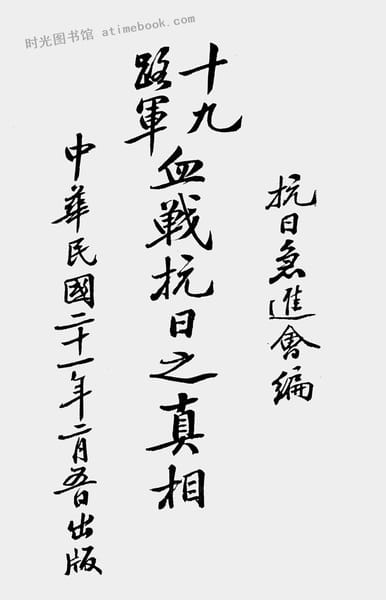 时光图书馆 atimebook.com
抗日急進會編
十九
路軍
血戦抗日之真相
中華民國二十一年二月五日出版